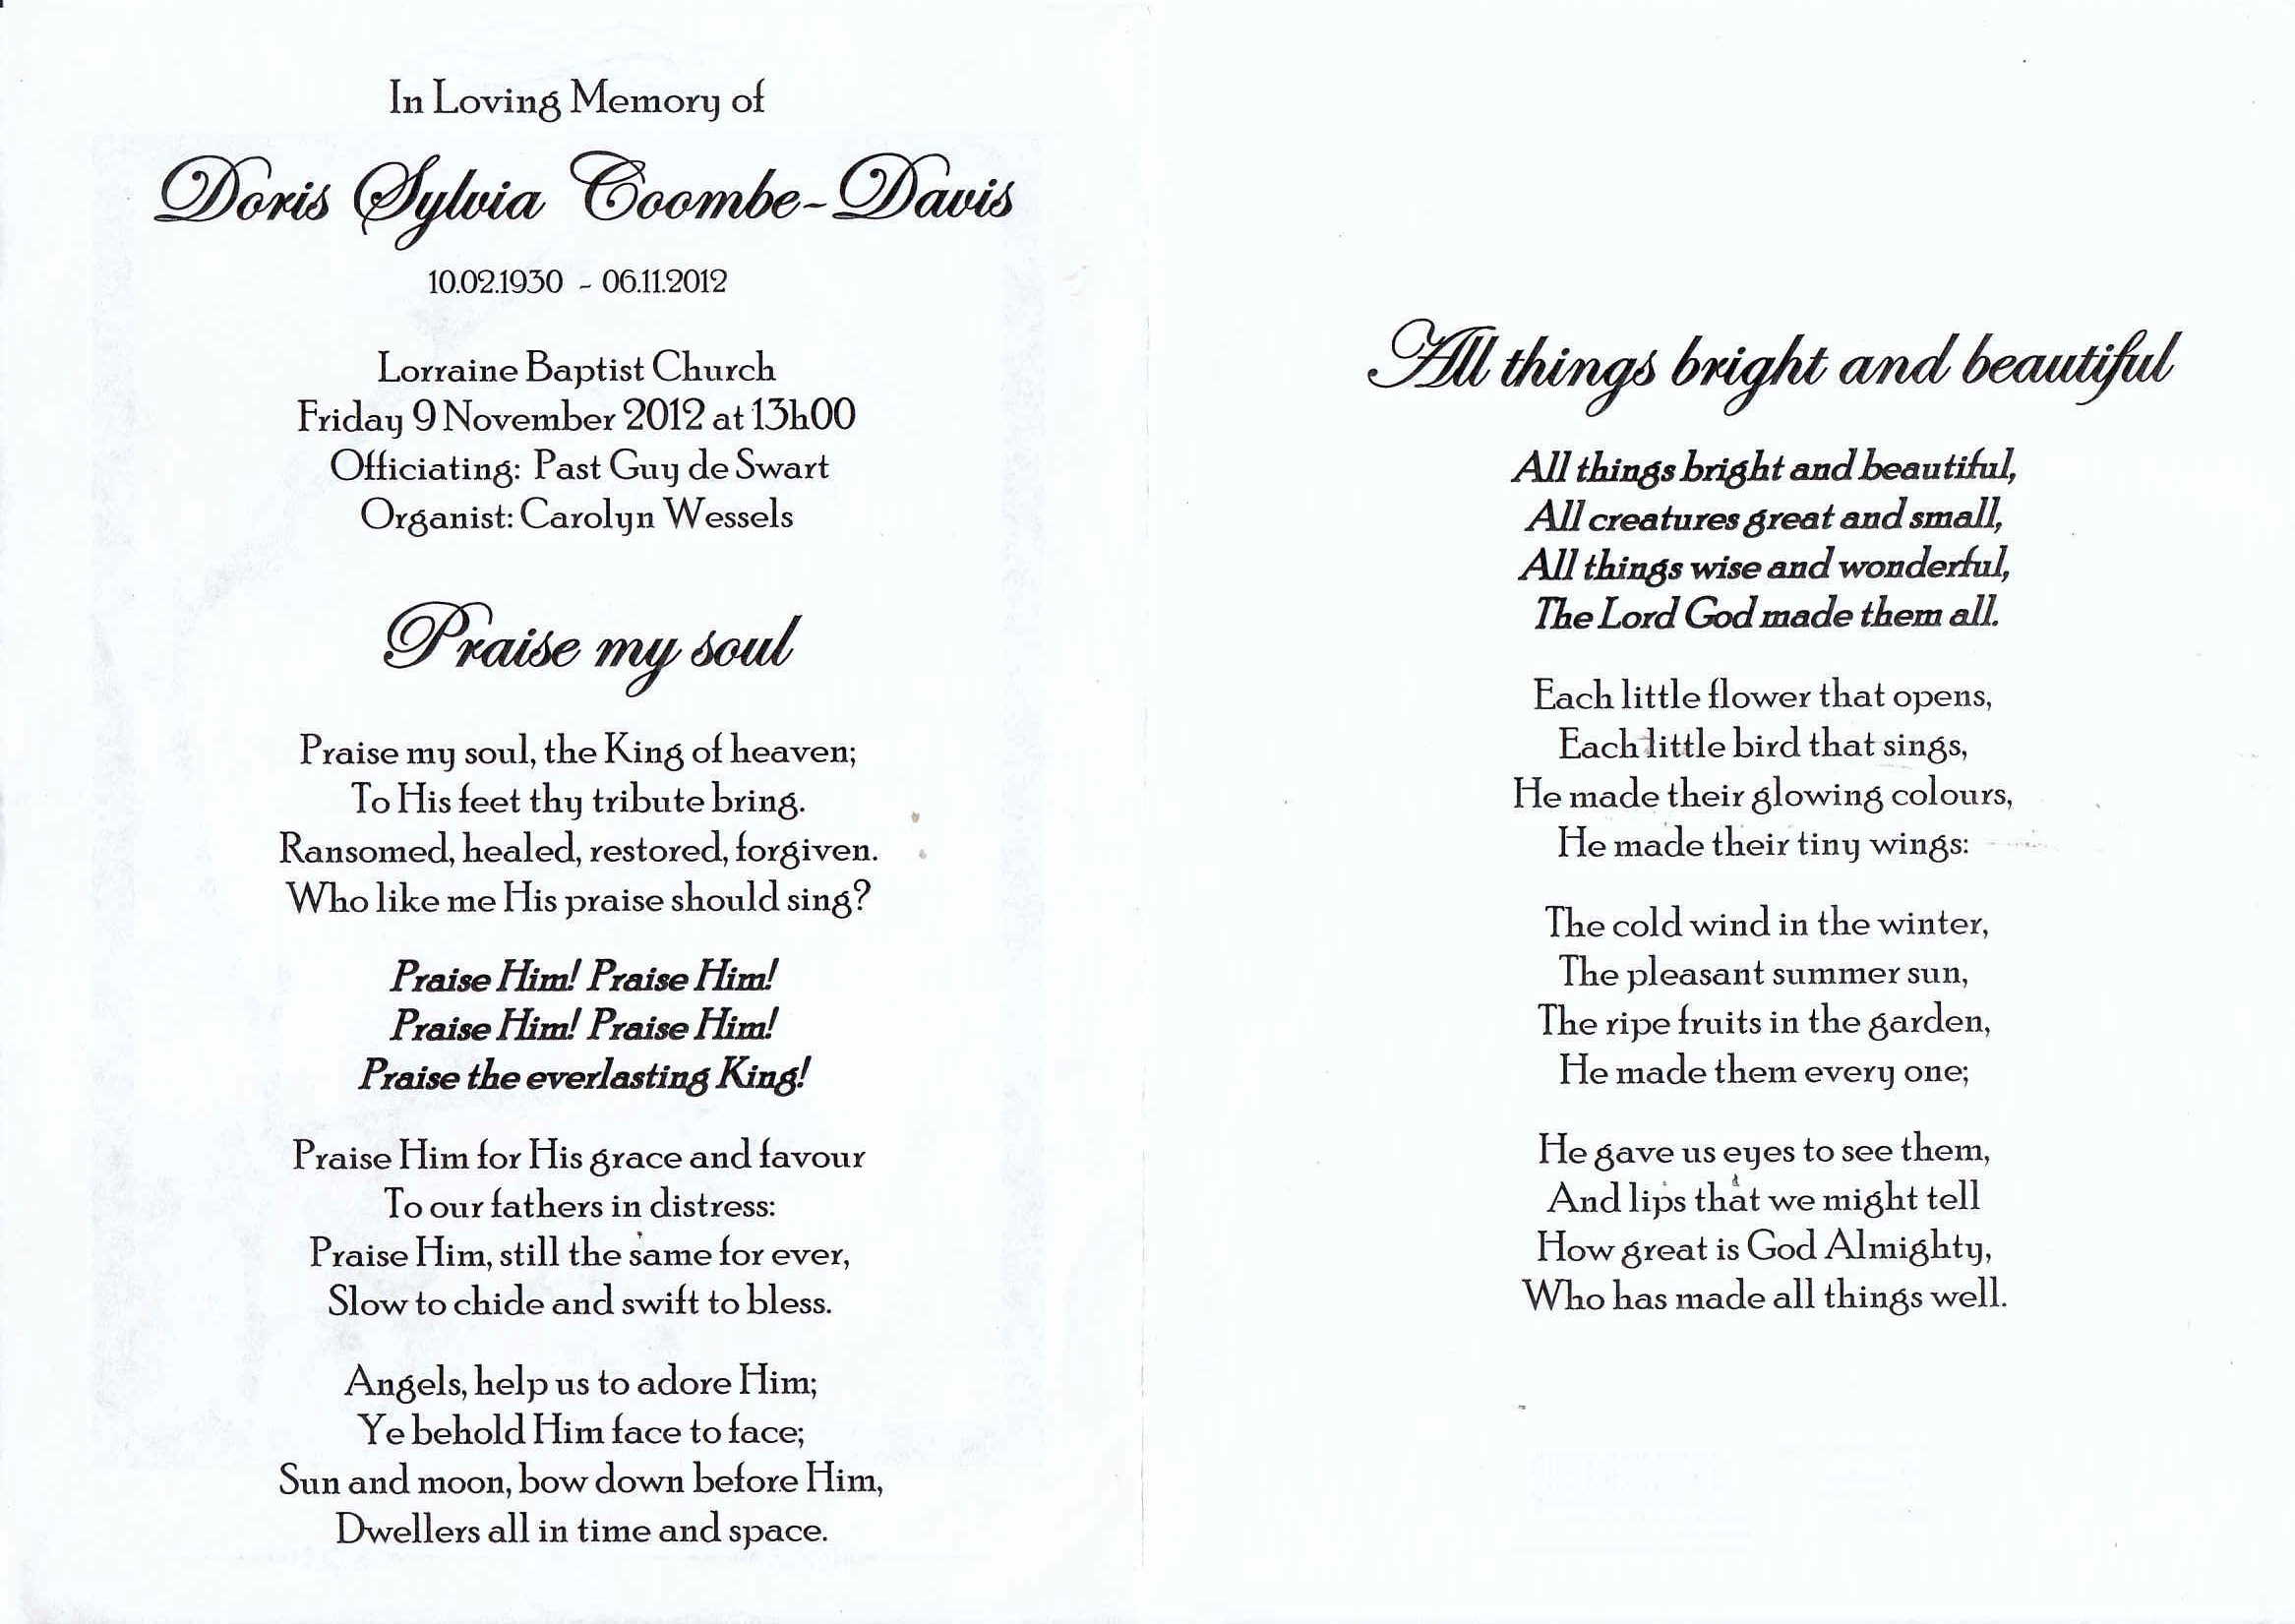 In Loving Memory of
Doris Sylvia Coombe-Davis
10.02.1930 - 06.11.2012
Lorraine Baptist Church
Friday 9 November 2012 at 13h00
Officiating: Past Guy de Swart
Organist: Carolyn Wessels
Praise my soul
Praise my soul, the King of heaven;
To His feet thy tribute bring.
Ransomed, healed, restored, forgiven.
Who like me His praise should sing?
Praise Him! Praise Him!
Praise Him! Praise Him!
Praise the everlasting King!
Praise Him for His grace and favour
To our fathers in distress:
Praise Him, still the same for ever,
Slow to chide and swift to bless.
Angels, help us to adore Him;
Ye behold Him face to face;
Sun and moon, bow down before Him,
Dwellers all in time and space.
All things bright and beautiful
All things bright and beautiful,
All creatures great and small,
All things wise and wonderful,
The Lord God made them all.
Each little flower that opens,
Each little bird that sings,
He made their glowing colours,
He made their tiny wings:
The cold wind in the winter,
The pleasant summer sun,
The ripe fruits in the garden,
He made them every one;
He gave us eyes to see them,
And lips that we might tell
How great is God Almighty,
Who has made all things well.